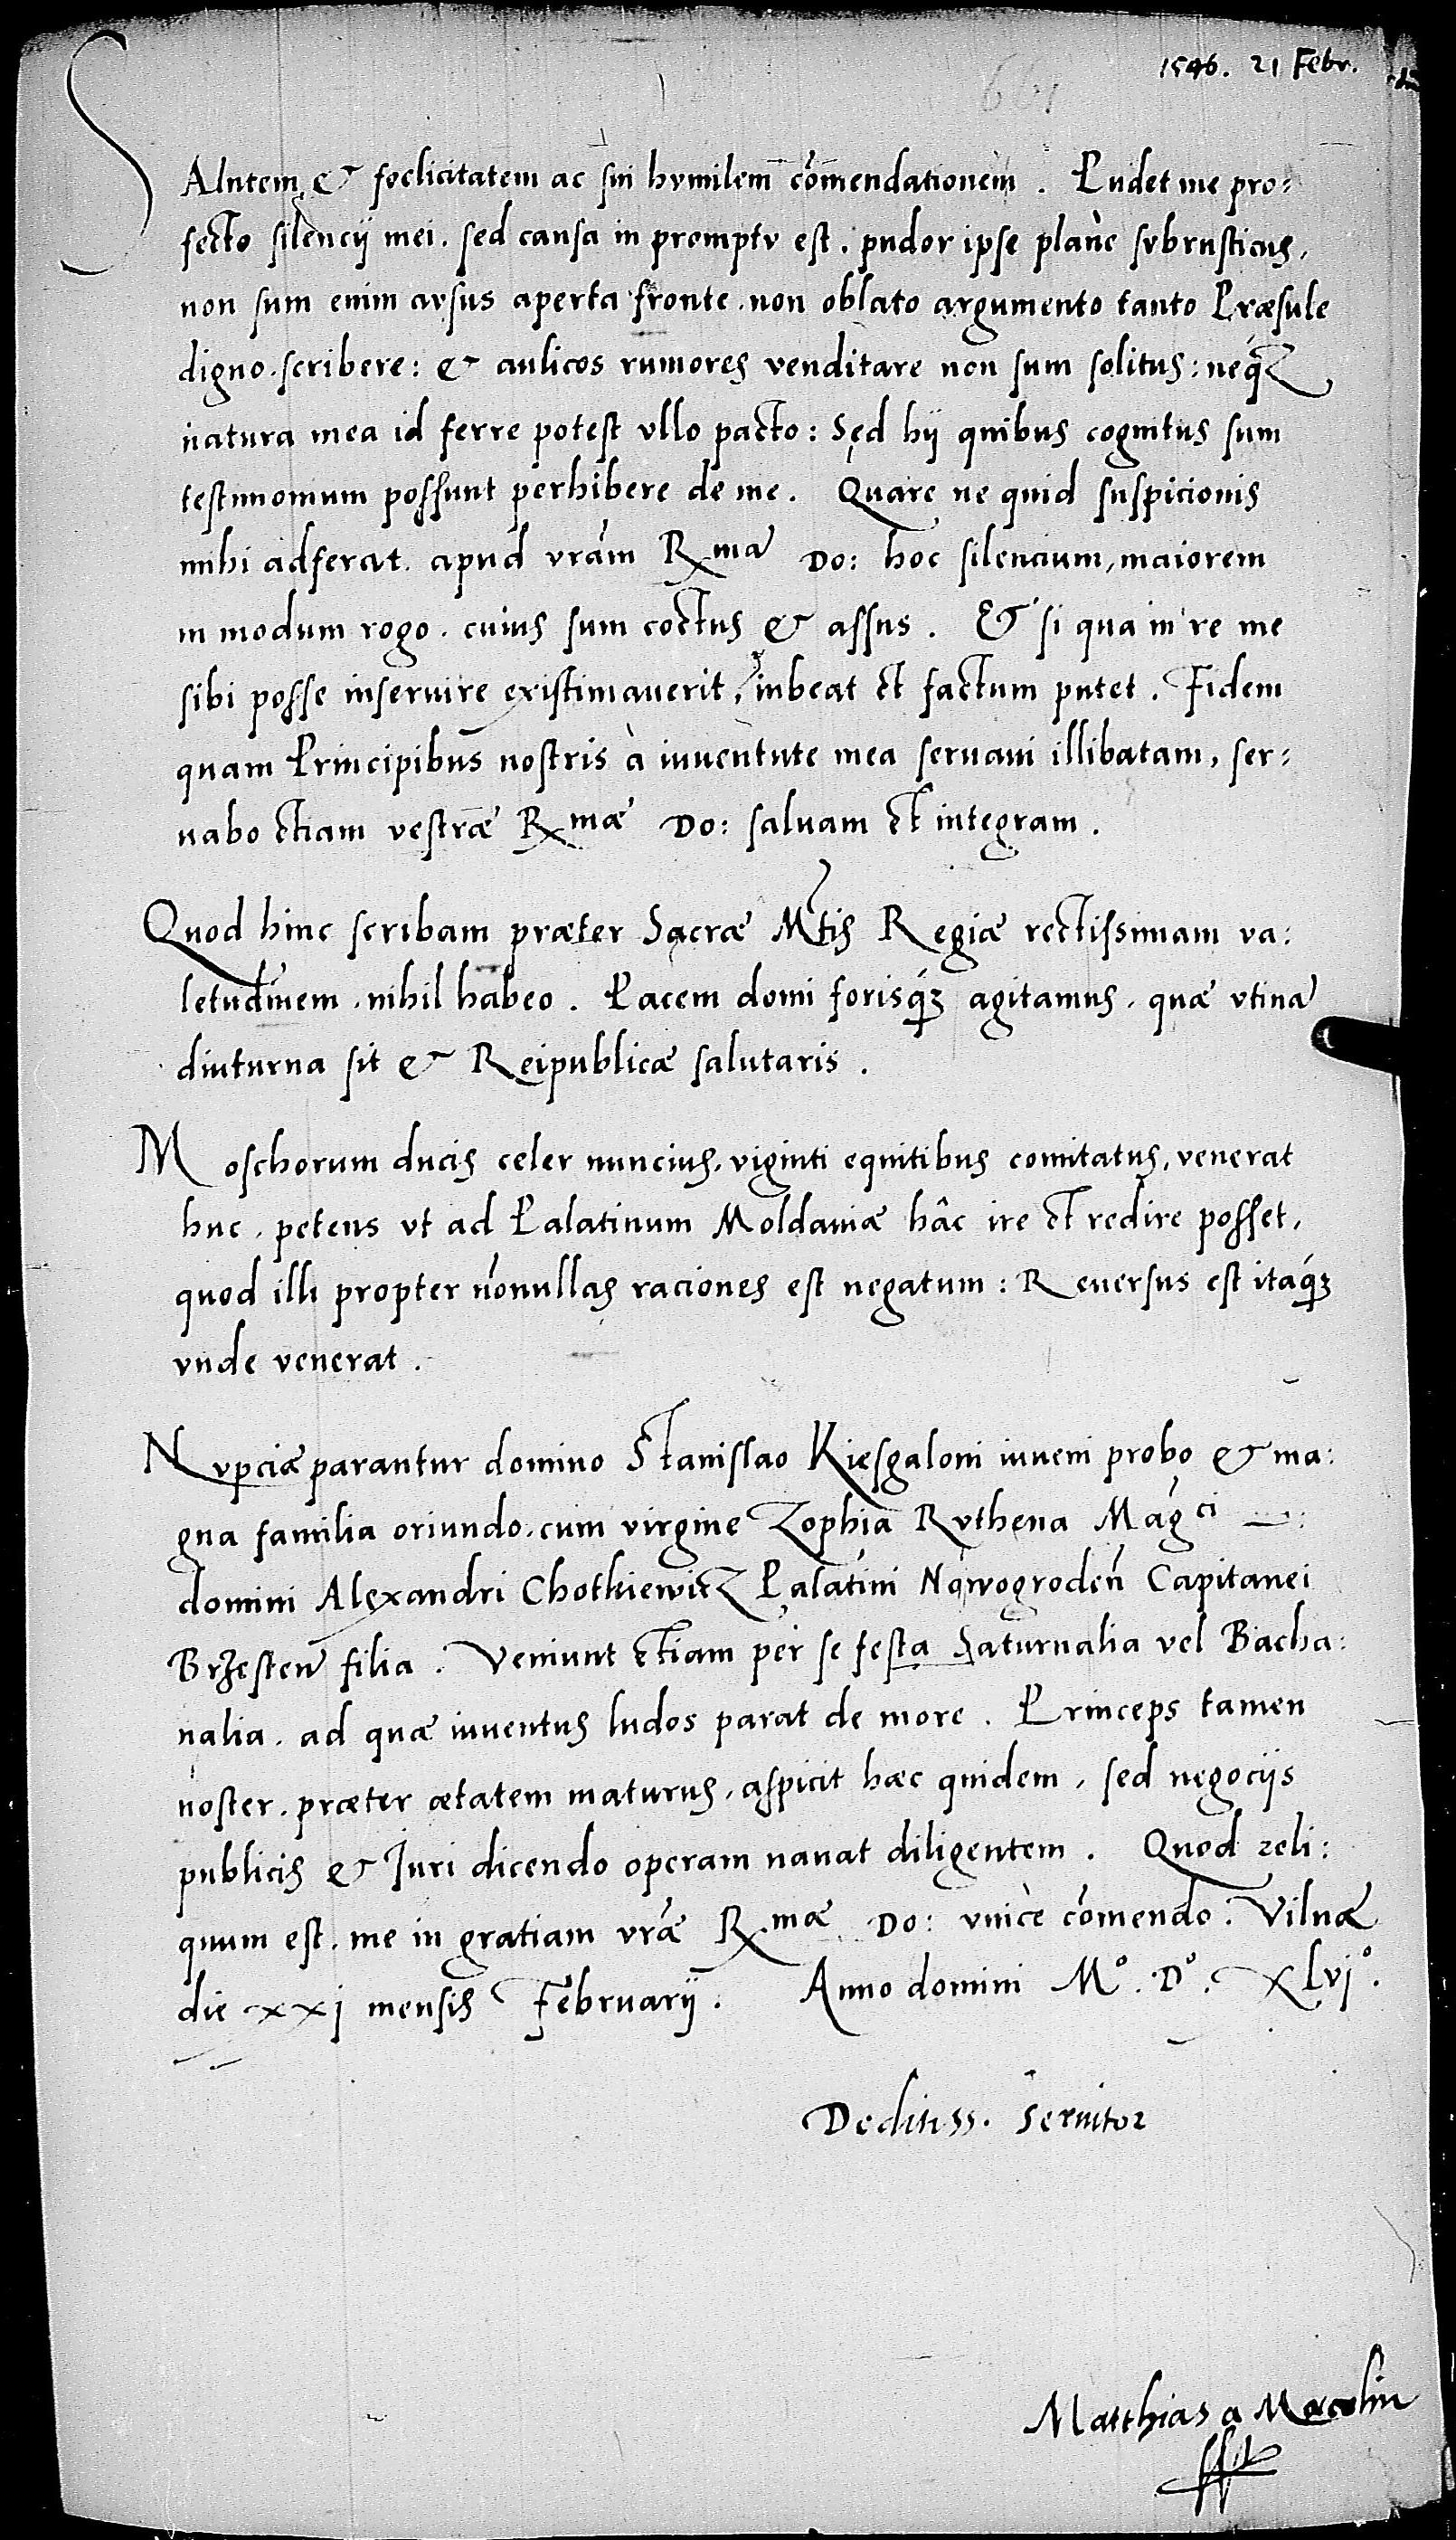 1546. 21 Febr.
SAlutem & foelicitatem ac sui hvmilem com̄endationem. Pudet me pro:
fecto silencij mei. sed causa in promptv est. pudor ipse planè svbrusticus,
non sum enim avsus aperta fronte. non oblato argumento tanto Præsule
digno. scribere: & aulicos rumores venditare non sum solitus: neq́ꝫ
natura mea id ferre potest vllo pacto: Sed hij quibus cognitus sum
testimonium possunt perhibere de me. Quare ne quid suspicionis
mihi adferat. apud vrãm Rmã Do: hoc silencium, maiorem
in modum rogo. cuius sum coctus & assus. Et si qua in re me
sibi posse inseruire existimauerit, iubeat et factum putet. Fidem
quam Principibus nostris à iuuentute mea seruaui illibatam, ser:
uabo etiam vestræ Rmæ Do: saluam et integram.
Quod hinc scribam præter Sacræ Mtis Regiæ rectissimam va:
letudinem. nihil habeo. Pacem domi forisq́ꝫ agitamus. quæ vtinã
diuturna sit & Reipublicæ salutaris.
Moschorum ducis celer nuncius. viginti equitibus comitatus, venerat
huc. petens vt ad Palatinum Moldauiæ hâc ire et redire posset,
quod illi propter nōnullas raciones est negatum: Reuersus est itaq́ꝫ
vnde venerat.
Nvpciæ parantur domino Stanislao Kiesgaloni iuueni probo & ma:
gna familia oriundo. cum virgine Zophia Rvthena Mag̃ci
domini Alexandri Chotkiewicz Palatini Nowogrodeñ Capitanei
Brzesteñ filia. Veniunt etiam per se festa Saturnalia vel Bacha:
nalia. ad quæ iuuentus ludos parat de more. Princeps tamen
noster. præter ætatem maturus. aspicit hæc quidem, sed negocijs
publicis & Juri dicendo operam nauat diligentem. Quod reli:
quum est. me in gratiam vrãe Rmæ Do: vnicè com̄endo. Vilnæ
die xxj mensis Februarij. Anno domini Mo. Do. XLvjo.
Deditiss. Seruitor
Matthias a